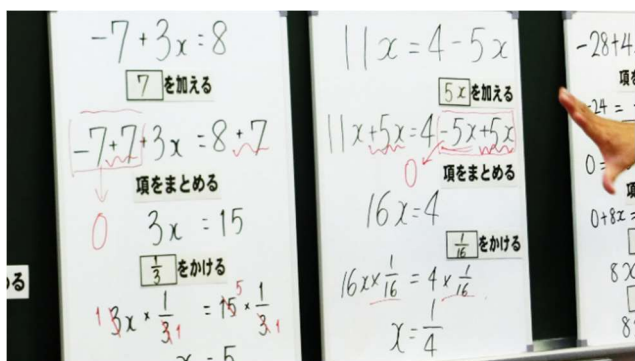 -7+3x=8
7を加える
-7+7+3x=8+7
項をまとめる
0
3x=15
1/3をかける
1 3x×1/3 1=15 5×1/3 1
x=5
11x=4-5x
5xを加える
11x+5x=4-5x+5x
0
項をまとめる
16x=4
1/16をかける
16x×1/16=4×1/16
x=1/4
-28+4
項
24=
0=
項
0+8x=
8x
8
る